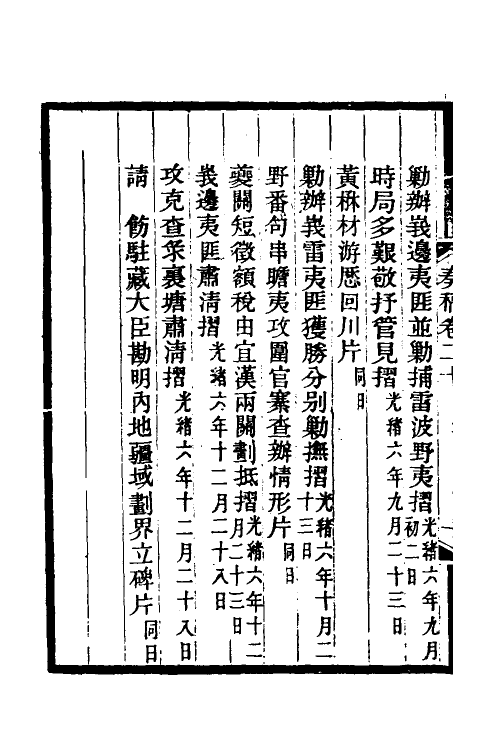 奏稿卷二十
勦辦峩邊夷匪並勦捕雷波野夷摺光緒六年九月初二日
時局多艱敬抒管見摺光緒六年九月二十三日
黃楙材游歷回川片同日
勦辦峩雷夷匪獲勝分别勦撫摺光緒六年十月二十三日
野番句串瞻夷攻圍官寨查辦情形片同日
夔關短徵額稅由宜漢兩關劃抵摺光緒六年十二月二十三日
峩邊夷匪肅清摺光緒六年十二月二十八日
攻克查朶裏塘肅清摺光緒六年十二月二十八日
請 飭駐藏大臣勘明內地疆域劃界立碑片同日